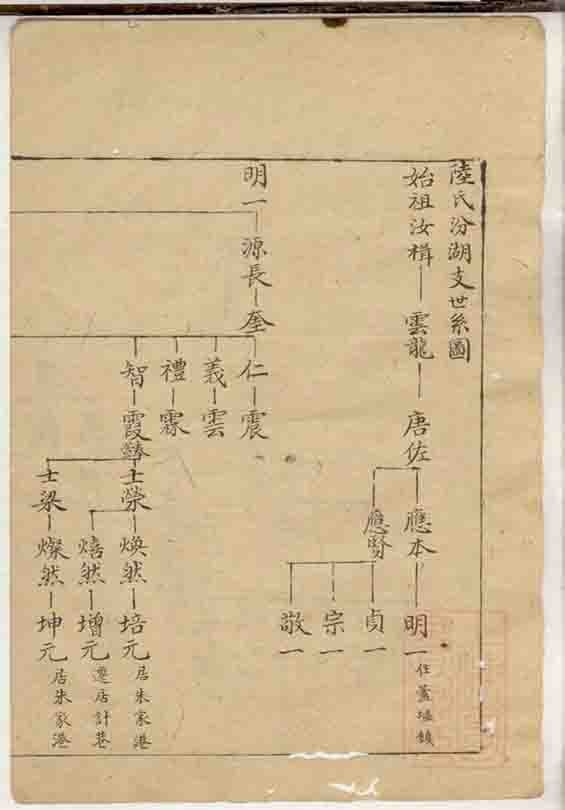 陸氏汾湖支世系圖
始祖汝楫 雲龍 唐佐 應本 明一 住蘆墟鎮
應賢 貞一
宗一
敬一
明一 源長 奎 仁 震
義 雲
禮 霖
智 霞 士榮 煥然 培元 居朱家港
熺然 增元 遷居計巷
士梁 燦然 坤元 居朱家港